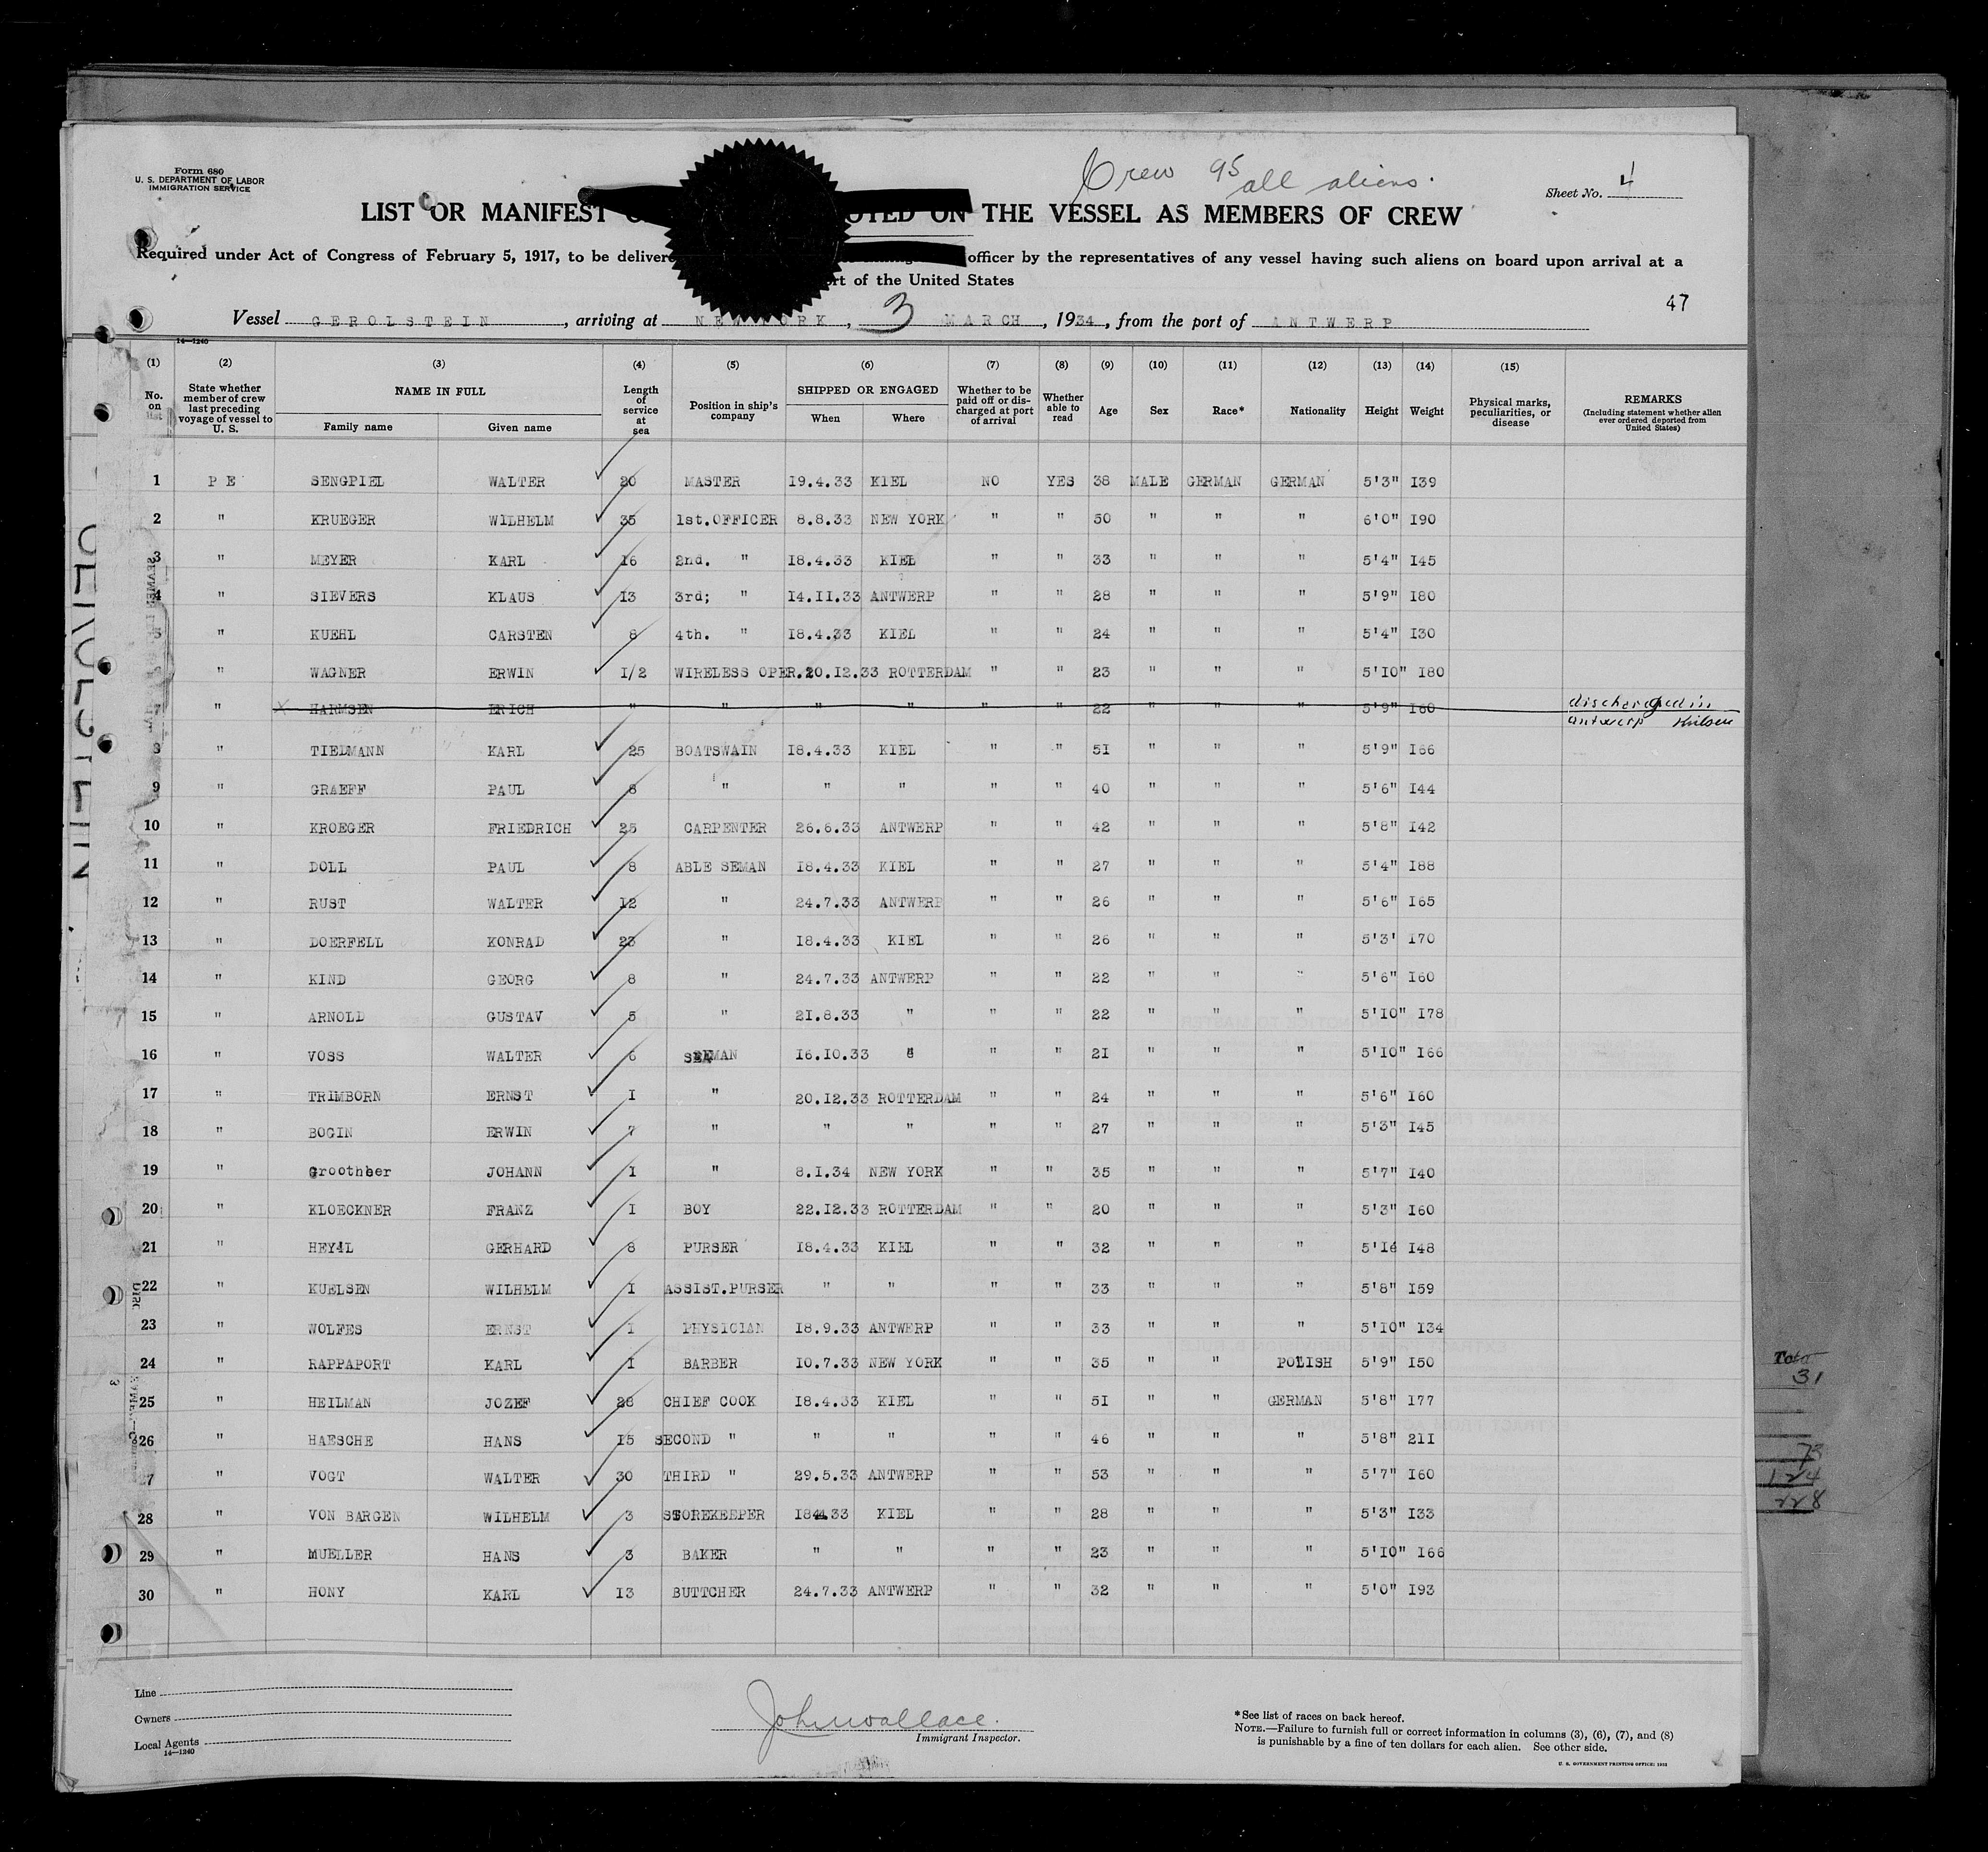 Form 680
U. S. DEPARTMENT OF LABOR
IMMIGRATION SERVICE
Crew 95 all aliens.
Sheet No. 4
LIST OR MANIFEST ON THE VESSEL AS MEMBERS OF CREW
Required under Act of Congress of February 5, 1917, to be deliver officer by the representatives of any vessel having such aliens on board upon arrival at a
of the United States
47
Vessel GEROLSTEIN, arriving at NEW YORK, 3 MARCH, 1934, from the port of ANTWERP
14—1240
(1) (2) (3) (4) (5) (6) (7) (8) (9) (10) (11) (12) (13) (14) (15)
No. on list | State whether member of crew last preceding voyage of vessel to U. S. | NAME IN FULL Family name Given name | Length of service at sea | Position in ship's company | SHIPPED OR ENGAGED When Where | Whether to be paid off or discharged at port of arrival | Whether able to read | Age | Sex | Race* | Nationality | Height | Weight | Physical marks, peculiarities, or disease | REMARKS (Including statement whether alien ever ordered deported from United States)
1 P E SENGPIEL WALTER 20 MASTER 19.4.33 KIEL NO YES 38 MALE GERMAN GERMAN 5'3" I39
2 " KRUEGER WILHELM 35 1st.OFFICER 8.8.33 NEW YORK " " 50 " " " 6'0" I90
3 " MEYER KARL 16 2nd. " I8.4.33 KIEL " " 33 " " " 5'4" I45
4 " SIEVERS KLAUS I3 3rd; " I4.II.33 ANTWERP " " 28 " " " 5'9" I80
5 " KUEHL CARSTEN 8 4th. " I8.4.33 KIEL " " 24 " " " 5'4" I30
" WAGNER ERWIN I/2 WIRELESS OPER.20.I2.33 ROTTERDAM " " 23 " " " 5'I0" I80
7 " X HARMSEN ERICH " " " " " " 22 " " " 5'9" I60 discharged in antwerp
8 " TIELMANN KARL 25 BOATSWAIN I8.4.33 KIEL " " 5I " " " 5'9" I66
9 " GRAEFF PAUL 8 " " " " " 40 " " " 5'6" I44
10 " KROEGER FRIEDRICH 25 CARPENTER 26.6.33 ANTWERP " " 42 " " " 5'8" I42
11 " DOLL PAUL 8 ABLE SEMAN I8.4.33 KIEL " " 27 " " " 5'4" I88
12 " RUST WALTER I2 " 24.7.33 ANTWERP " " 26 " " " 5'6" I65
13 " DOERFELL KONRAD 23 " I8.4.33 KIEL " " 26 " " " 5'3' I70
14 " KIND GEORG 8 " 24.7.33 ANTWERP " " 22 " " " 5'6" I60
15 " ARNOLD GUSTAV 5 " 2I.8.33 " " " 22 " " " 5'I0" I78
16 " VOSS WALTER 6 SEAMAN I6.I0.33 " " " 2I " " " 5'I0" I66
17 " TRIMBORN ERNST I " 20.I2.33 ROTTERDAM " " 24 " " " 5'6" I60
18 " BOGIN ERWIN 7 " " " " " 27 " " " 5'3" I45
19 " Groothber JOHANN I " 8.I.34 NEW YORK " " 35 " " " 5'7" I40
20 " KLOECKNER FRANZ I BOY 22.I2.33 ROTTERDAM " " 20 " " " 5'3" I60
21 " GERHARD 8 PURSER I8.4.33 KIEL " " 32 " " " I48
22 " KUELSEN WILHELM I ASSIST.PURSER " " " " 33 " " " 5'8" I59
23 " WOLFES ERNST I PHYSICIAN I8.9.33 ANTWERP " " 33 " " " 5'I0" I34
24 " RAPPAPORT KARL I BARBER I0.7.33 NEW YORK " " 35 " " POLISH 5'9" I50
25 " HEILMAN JOZEF 28 CHIEF COOK I8.4.33 KIEL " " 5I " " GERMAN 5'8" I77
26 " HAESCHE HANS I5 SECOND " " " " " 46 " " " 5'8" 2II
7 " VOGT WALTER 30 THIRD " 29.5.33 ANTWERP " " 53 " " " 5'7" I60
28 " VON BARGEN WILHELM 3 STOREKEEPER I8.4.33 KIEL " " 28 " " " 5'3" I33
29 " MUELLER HANS 3 BAKER " " " " 23 " " " 5'I0" I66
30 " HONY KARL I3 BUTTCHER 24.7.33 ANTWERP " " 32 " " " 5'0" I93
GEROLSTEIN
Total
31
73
124
228
Line
Owners
Local Agents
14—1240
John Wallace.
Immigrant Inspector.
*See list of races on back hereof.
NOTE.—Failure to furnish full or correct information in columns (3), (6), (7), and (8)
is punishable by a fine of ten dollars for each alien. See other side.
U. S. GOVERNMENT PRINTING OFFICE: 1932